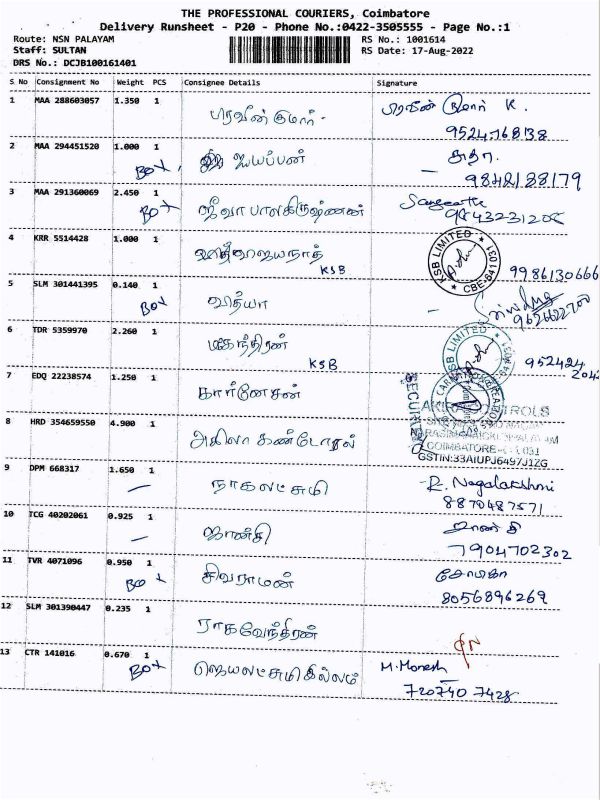 THE PROFESSIONAL COURIERS, Coimbatore
Delivery Runsheet - P20 - Phone No.:0422-3505555 - Page No.:1
Route: NSN PALAYAM RS No.: 1001614
Staff: SULTAN RS Date: 17-Aug-2022
DRS No.: DCJB100161401
S No Consignment No Weight PCS Consignee Details Signature
1 MAA 288603057 1.350 1 பிரவீன்குமார் பிரவீன் குமார் K.
9524768138
2 MAA 294451520 1.000 1 ஐயப்பன் சுதா
Box 9842188179
3 MAA 291360069 2.450 1 ஜீவா பாலகிருஷ்ணன் Sangeetha
Box
4 KRR 5514428 1.000 1 KSB LIMITED
KSB CBE-641031 9986130666
5 SLM 301441395 0.140 1 வித்யா Srividya
Box
6 TDR 5359970 2.260 1 மகேந்திரன் KSB LIMITED
KSB 952424
2042
7 EDQ 22238574 1.250 1 கார்னேசன்
SECURITY
8 HRD 354659550 4.900 1 அகிலா கண்ட்ரோல் AKILA CONTROLS
NARASIMANAICKENPALAYAM
COIMBATORE-641 031
GSTIN:33AIUPJ6497J1ZG
9 DPM 668317 1.650 1 நாகலட்சுமி R. Nagalakshmi
8870487571
10 TCG 40202061 0.925 1 ஜான்சி ஜான்சி
7904702302
11 TVR 4071096 0.950 1 சிவராமன் சோபிகா
Box 8056896269
12 SLM 301390447 0.235 1 ராகவேந்திரன்
13 CTR 141016 0.670 1 ஜெயலட்சுமி இல்லம் M. Monesh
Box 720740 7428